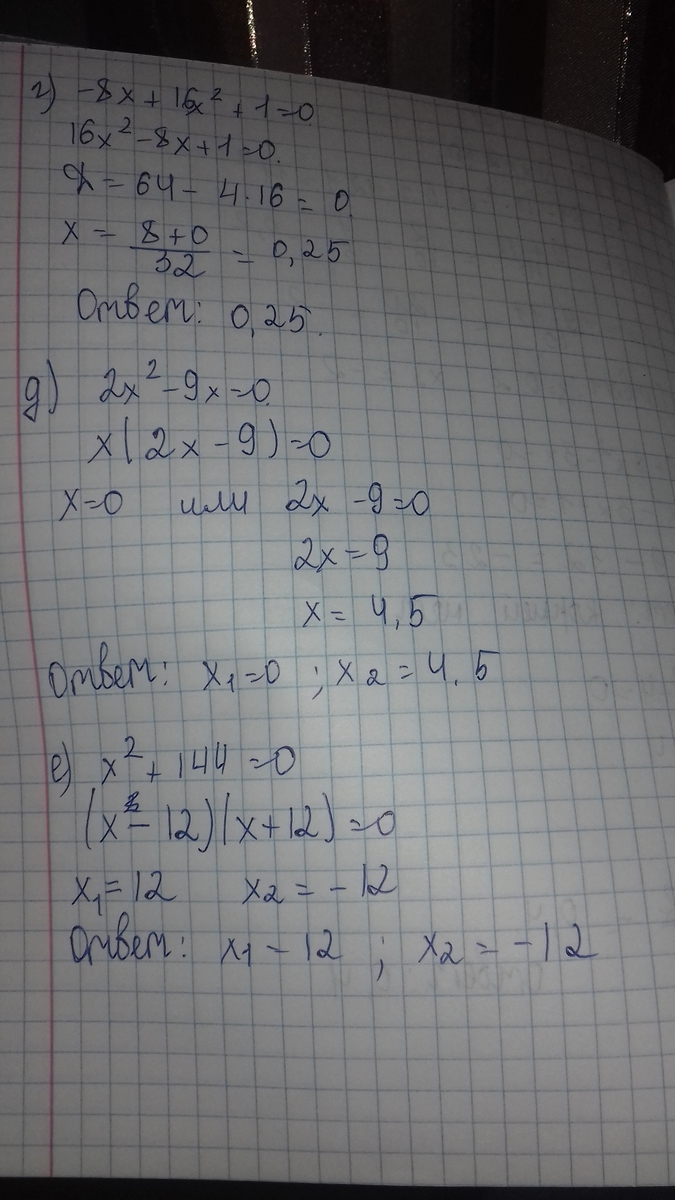 г) -8x + 16x² + 1 = 0
16x² - 8x + 1 = 0.
Д = 64 - 4·16 = 0.
x = (8+0)/32 = 0,25
Ответ: 0,25.
д) 2x² - 9x = 0.
x(2x - 9) = 0
x = 0 или 2x - 9 = 0
2x = 9
x = 4,5
Ответ: x₁ = 0 ; x₂ = 4.5
е) x² + 144 = 0
(x - 12)(x + 12) = 0
x₁ = 12 x₂ = -12
Ответ: x₁ - 12 ; x₂ = -12